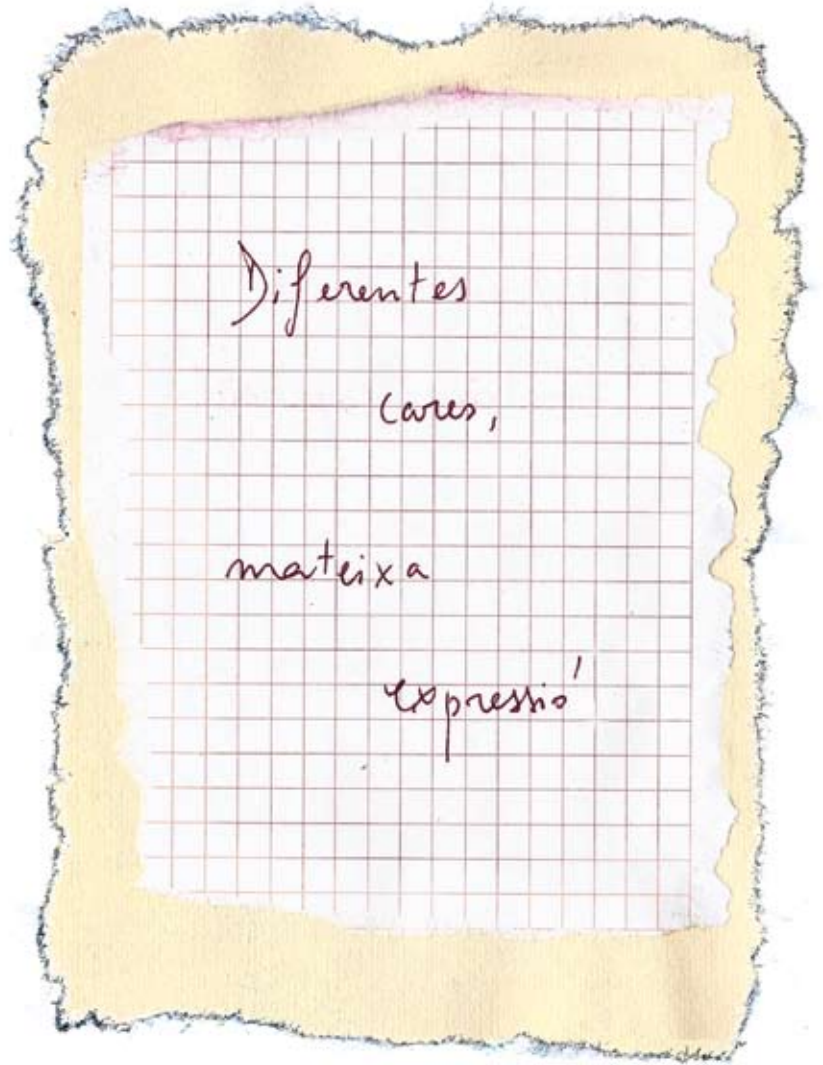 Diferentes
cares,
mateixa
expressió